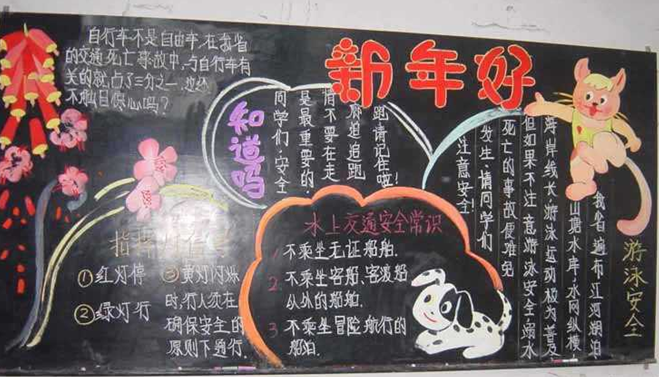 新年好
自行车不是自由车,在我省
的交通死亡事故中,与自行车有
关的就占了三分之一,这还
不触目惊心吗?
知道吗
同学们,安全
是最重要的
请不要在走
廊追追跑
跑请记住啦!
①红灯停
②绿灯行
③黄灯闪烁
时,行人须在
确保安全的
原则下通行.
水上交通安全常识
1 不乘坐无证船舶.
2 不乘坐客船、客渡船
以外的船舶.
3 不乘坐冒险航行的
船舶.
游泳安全
我省遍布江河湖泊
山塘水库,水网纵横
海岸线长,游泳运动极为普及
但如果不注意游泳安全,溺水
死亡的事故便难免
发生,请同学们
注意安全!